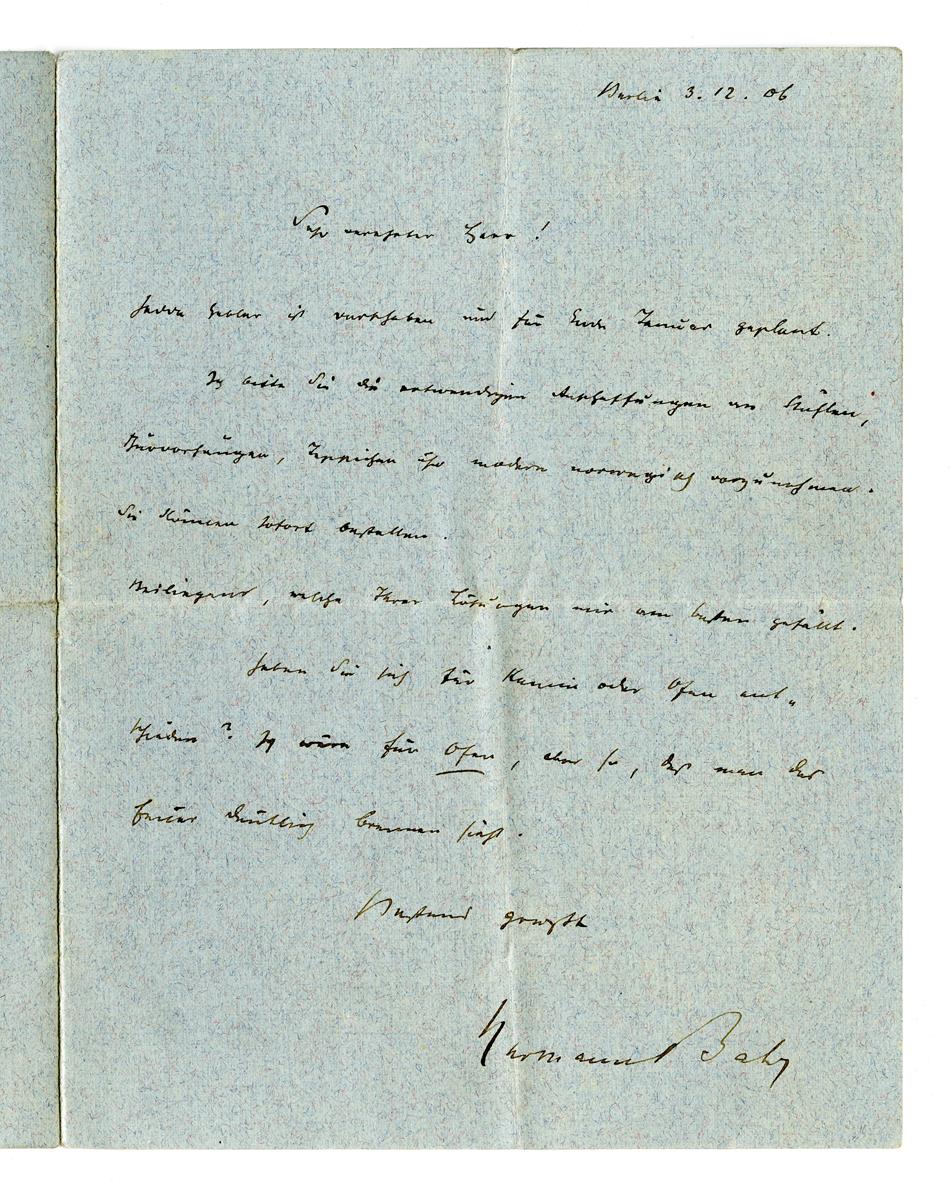 Berlin 3. 12. 06
Sehr verehrter Herr!
Hedda Gabler ist vorhaben und für Ende Januar geplant.
Ich bitte Sie die notwendigen Anschaffungen an Stühlen,
Türvorhängen, Teppichen sehr modern norwegisch vorzunehmen.
Sie können sofort bestellen.
Beiliegend, welche Ihrer Lösungen mir am besten gefällt.
Haben Sie sich für Kamin oder Ofen ent-
schieden? Ich wäre für Ofen, aber so, daß man das
Feuer deutlich brennen sieht.
Bestens grüßt
Hermann Bahr